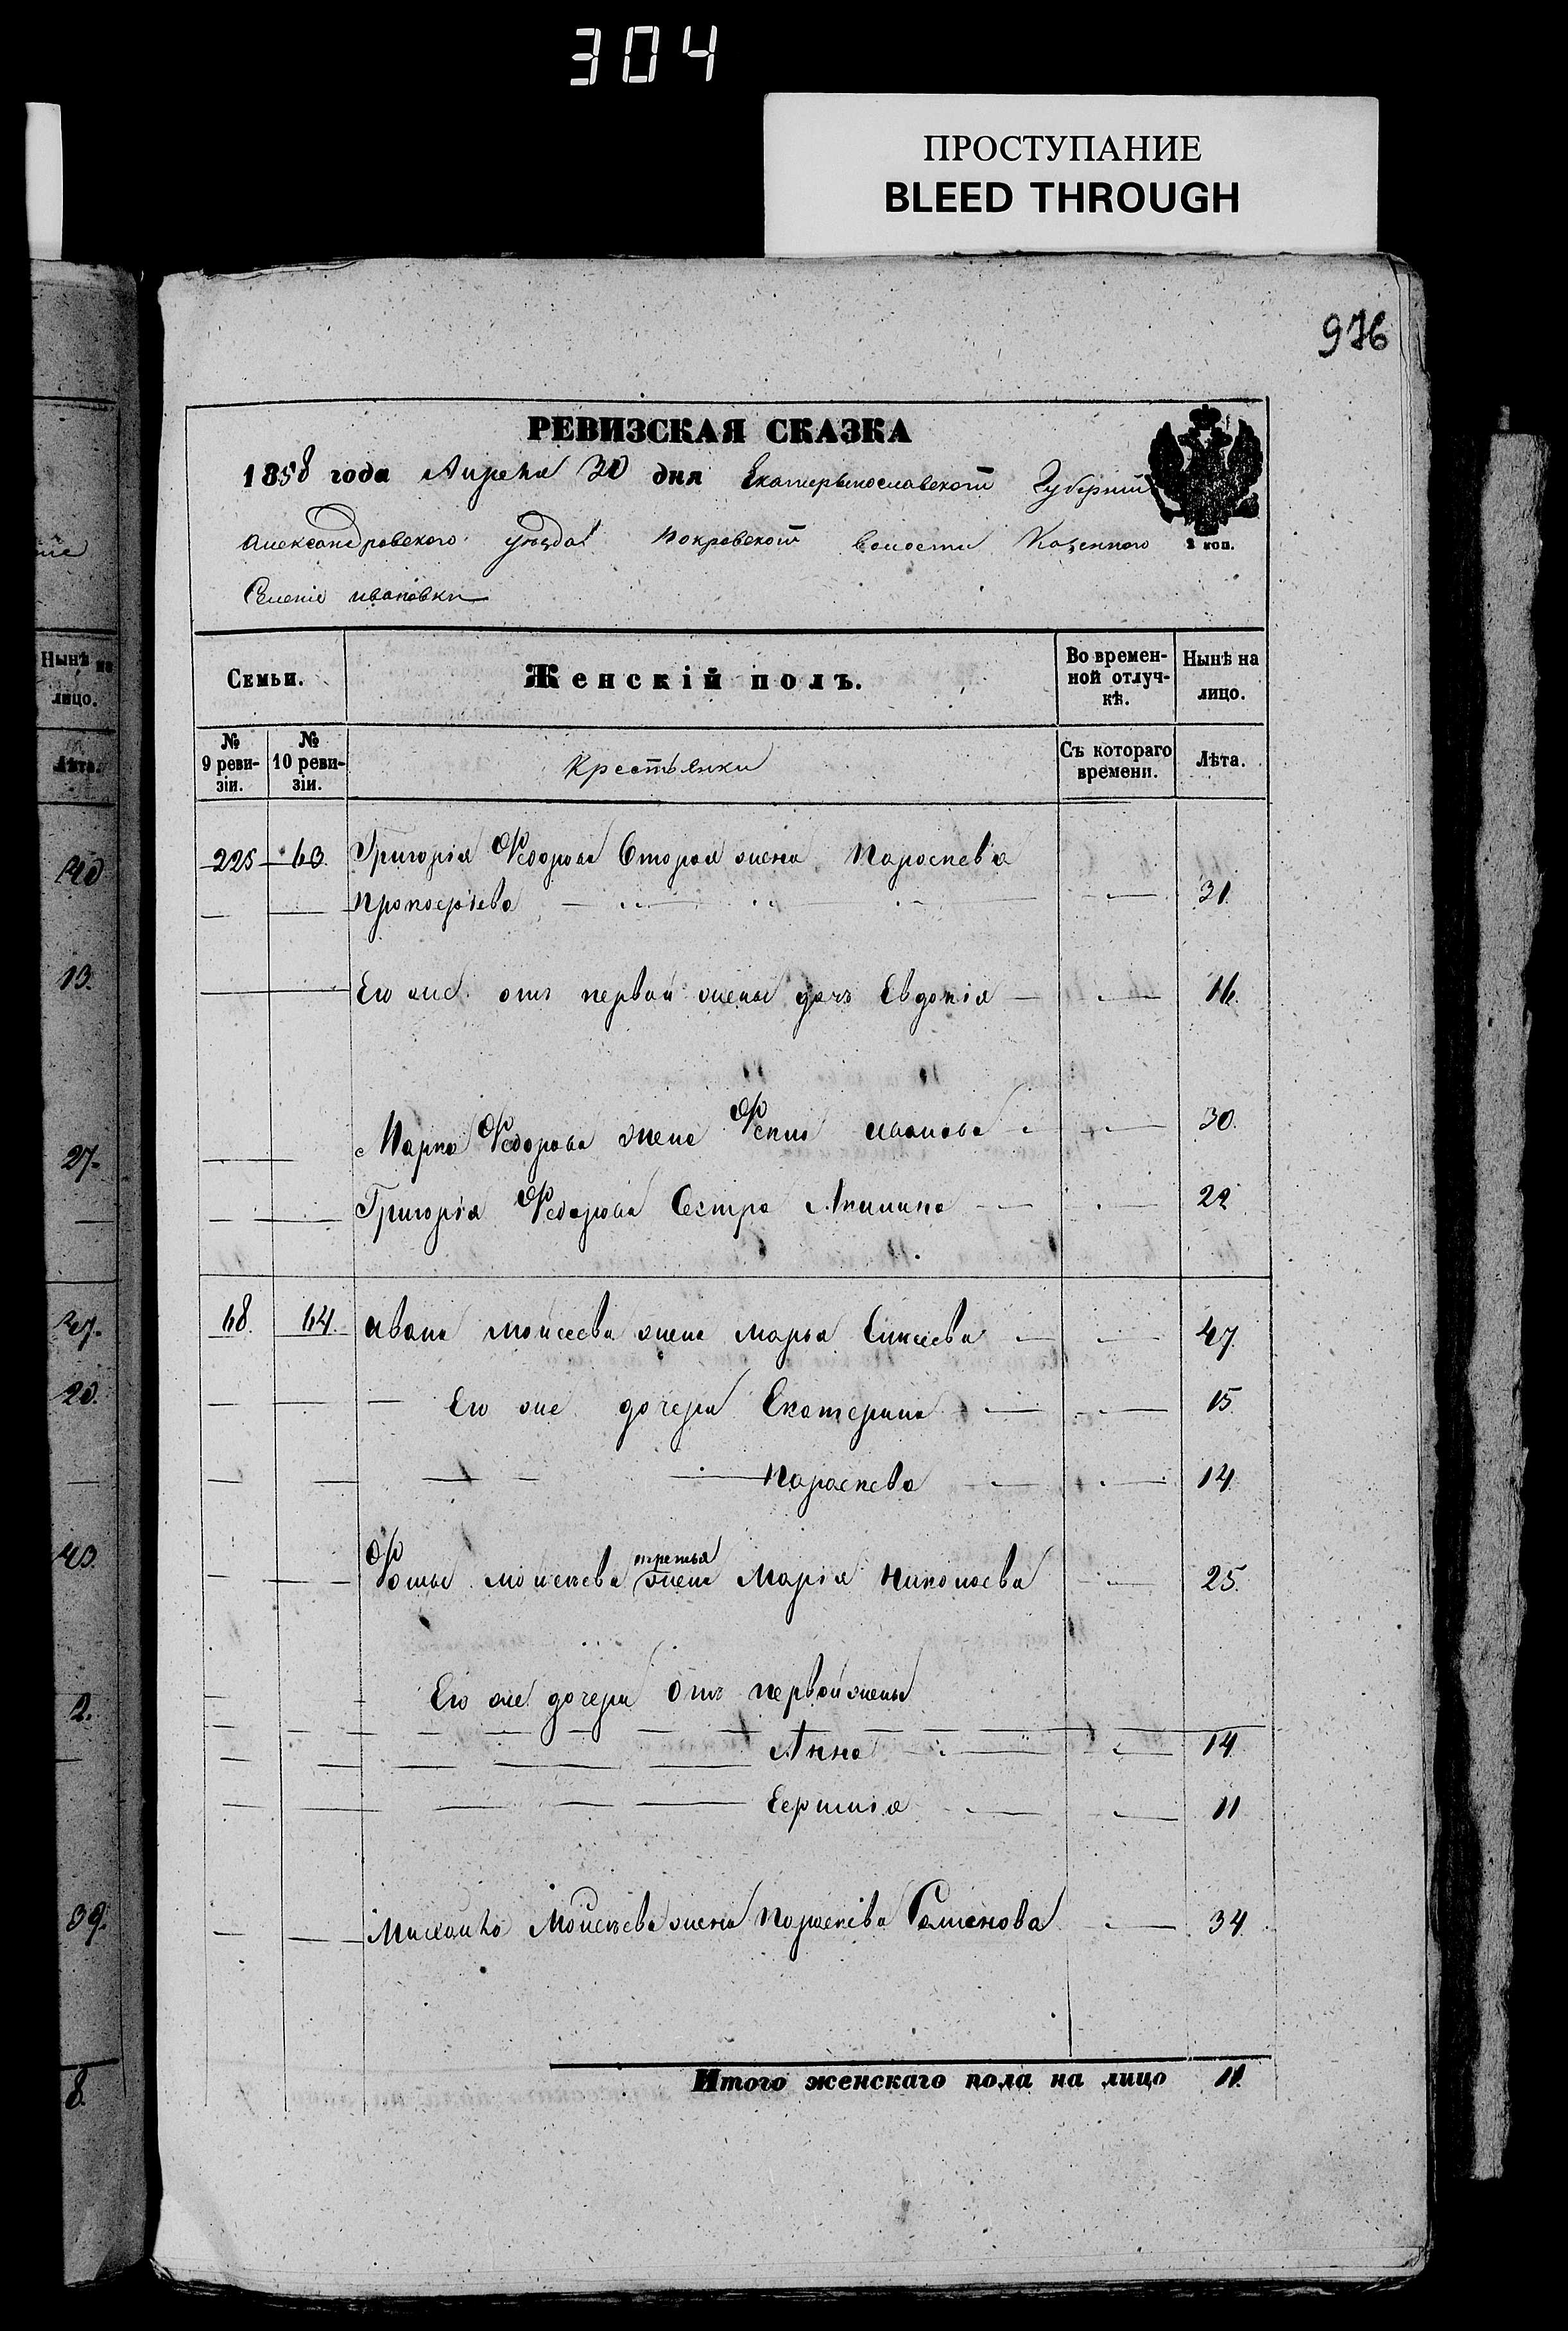 304
ПРОСТУПАНИЕ
BLEED THROUGH
976
РЕВИЗСКАЯ СКАЗКА
1858 года Апреля 30 дня Екатеринославской Губернии
Александровского уѣзда Покровской волости Казенного
2 коп.
Селенiя ивановки
Семьи.
Женскiй полъ.
Во времен-
ной отлуч-
кѣ.
Нынѣ на
лицо.
№
9 реви-
зiи.
№
10 реви-
зiи.
Крестьянки
Съ котораго
времени.
Лѣта.
225 63. Григорiя Федорова Вторая жена Параскева
Прокофiева 31.
Его же отъ первой жены дочь Евдокiя 16.
Марка Федорова жена Фекла иванова 30.
Григорiя Федорова Сестра Акилина 22
68. 64. ивана Моисеева жена Марья Елисеева 47.
Его же дочери Екатерина 15
Параскева 14.
третья
Фомы Моисеева жена Марiя Николаева 25.
Его же дочери Отъ первой жены
Анна 14.
11
Михайла Моисеева жена Параскева Семенова 34.
Итого женскаго пола на лицо 11.
Нынѣ на
лицо.
Лѣта.
40
13.
27.
47.
20.
43.
2.
39.
8.